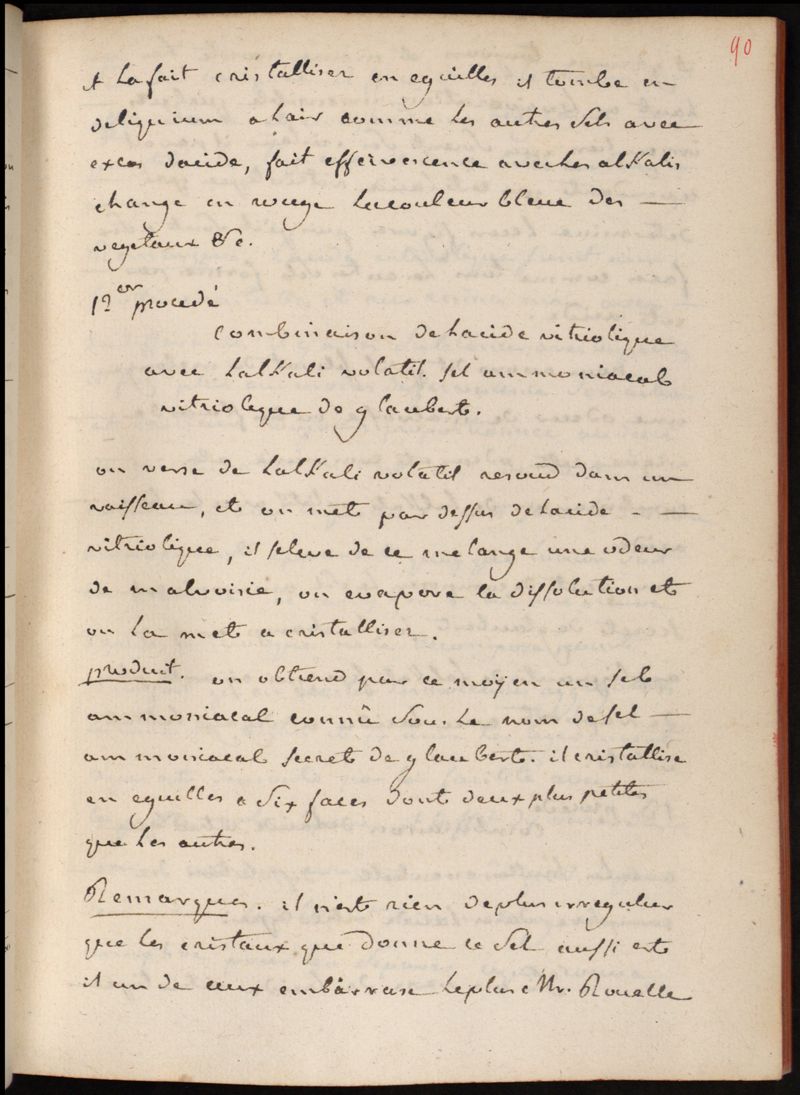 90
et la fait cristalliser en eguilles il tombe en
deliquium a lair comme les autres sels avec
exces dacide, fait effervescence avec les alKalis
change en rouge la couleur bleue des —
vegetaux &c.
12er procedé
Combinaison de lacide vitriolique
avec lalKali volatil. sel ammoniacal
vitriolique de glaubert.
on verse de lalKali volatil resoud dans un
vaisseau, et on met par dessus de lacide - —
vitriolique, il seleve de ce melange une odeur
de malvoisie, on evapore la dissolution et
on la met a cristalliser.
produit. on obtiend par ce moÿen un sel
ammoniacal connû sous le nom de sel —
ammoniacal secret de glaubert. il cristallise
en eguilles a six faces dont deux plus petites
que les autres.
Remarques. il n'est rien de plus irregulier
que les cristaux que donne ce sel aussi est
il un de ceux embârrase le plus Mr. Rouelle